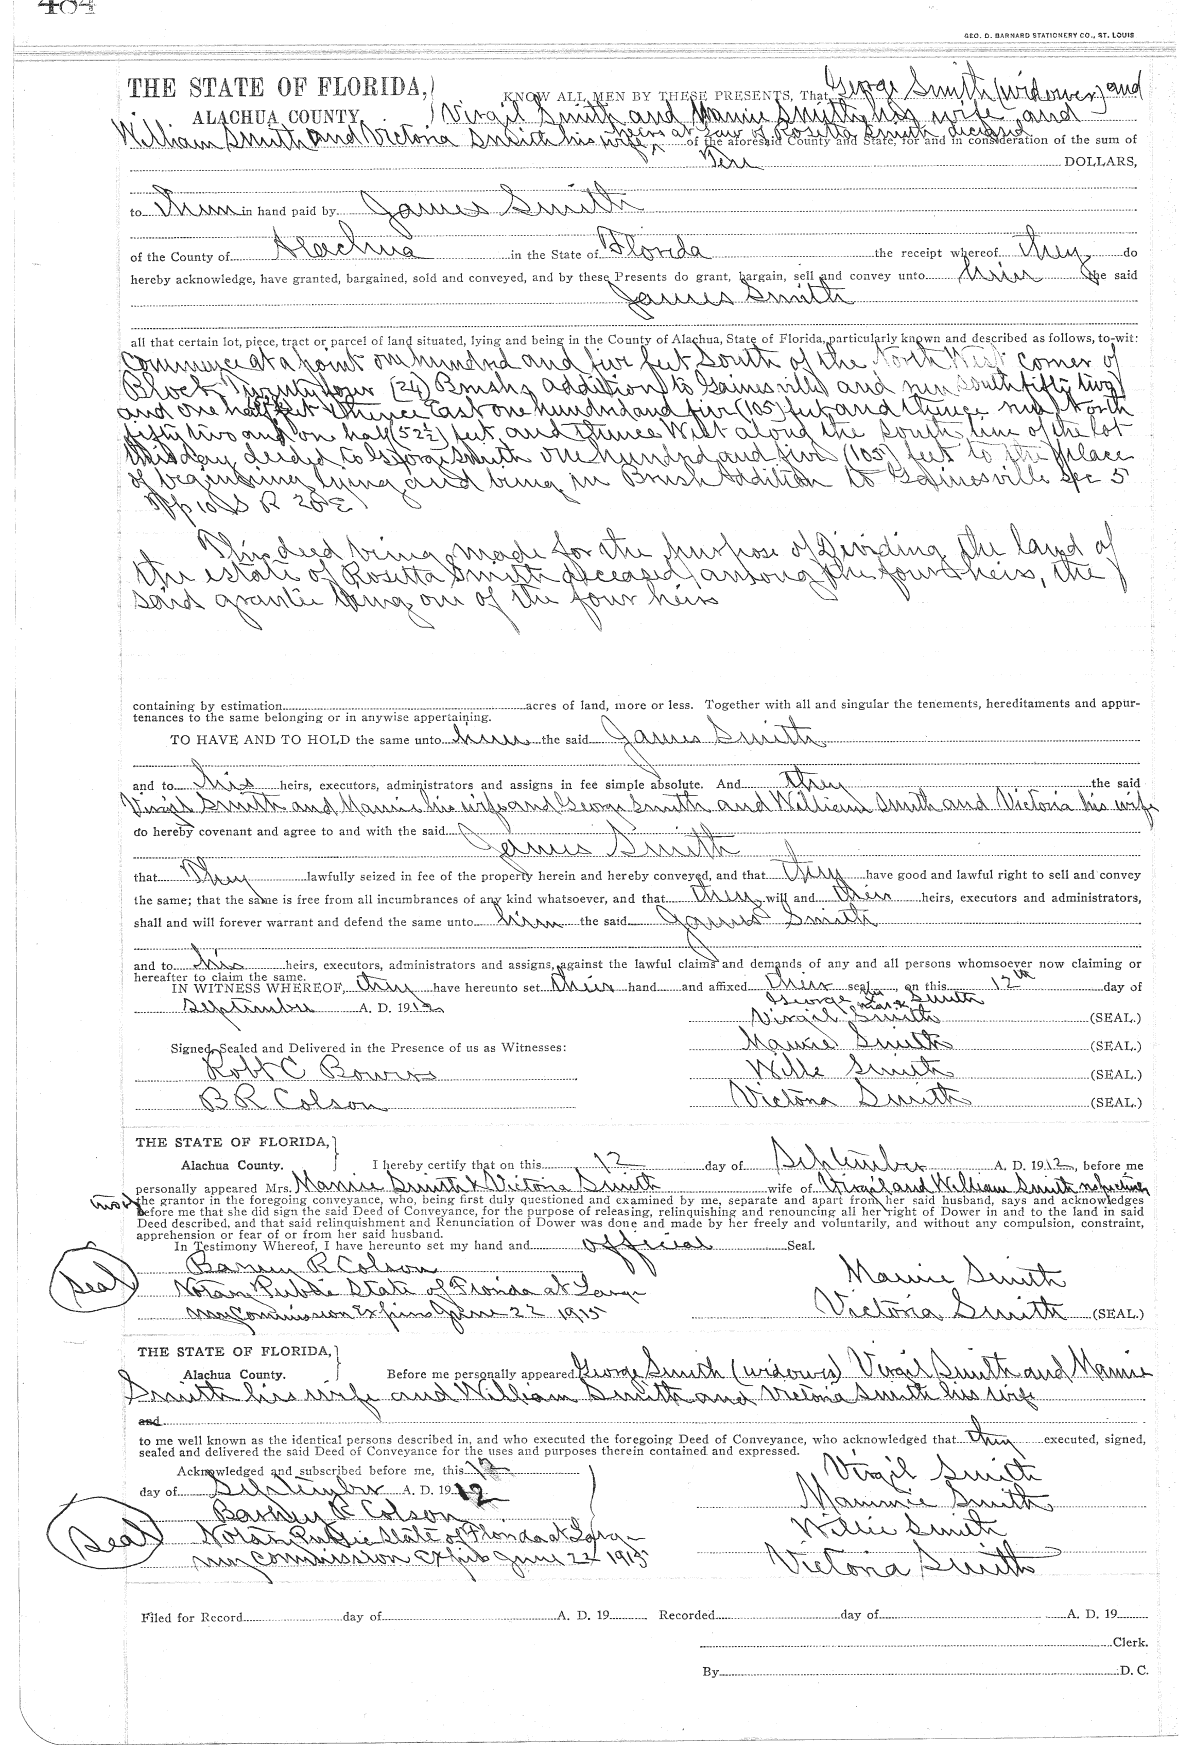 484
GEO. D. BARNARD STATIONERY CO., ST. LOUIS
THE STATE OF FLORIDA, KNOW ALL MEN BY THESE PRESENTS, That George Smith (widower) and
ALACHUA COUNTY. Virgil Smith and Mamie Smith, his wife and
William Smith and Victoria Smith his wife heirs at law of Rosetta Smith deceased of the aforesaid County and State, for and in consideration of the sum of
Ten DOLLARS,
to them in hand paid by James Smith
of the County of Alachua in the State of Florida the receipt whereof they do
hereby acknowledge, have granted, bargained, sold and conveyed, and by these Presents do grant, bargain, sell and convey unto him the said
James Smith
all that certain lot, piece, tract or parcel of land situated, lying and being in the County of Alachua, State of Florida, particularly known and described as follows, to-wit:
Commence at a point on hundred and five feet South of the North West corner of
Block Twenty four (24) Brushs addition to Gainesville and run south fifty two
and one half feet thence East one hundred and five (105) feet and thence run North
fifty two and on half (52½) feet, and thence West along the south line of the lot
this day deeded to George Smith one hundred and five (105) feet to the place
of beginning lying and being in Brush Addition to Gainesville Sec 5
Tp 10 S R 20 E
This deed being made for the purpose of Dividing the land of
the estate of Rosetta Smith deceased, among the four heirs, the
said grantee being one of the four heirs
containing by estimation acres of land, more or less. Together with all and singular the tenements, hereditaments and appur-
tenances to the same belonging or in anywise appertaining.
TO HAVE AND TO HOLD the same unto him the said James Smith
and to his heirs, executors, administrators and assigns in fee simple absolute. And they the said
Virgil Smith and Mamie his wife and George Smith and William Smith and Victoria his wife
do hereby covenant and agree to and with the said
James Smith
that They lawfully seized in fee of the property herein and hereby conveyed, and that they have good and lawful right to sell and convey
the same; that the same is free from all incumbrances of any kind whatsoever, and that they will and their heirs, executors and administrators,
shall and will forever warrant and defend the same unto him the said James Smith
and to his heirs, executors, administrators and assigns, against the lawful claims and demands of any and all persons whomsoever now claiming or
hereafter to claim the same.
IN WITNESS WHEREOF, they have hereunto set their hand and affixed their seal, on this 12th day of
September A. D. 1912 George his mark Smith
Virgil Smith (SEAL.)
Signed, Sealed and Delivered in the Presence of us as Witnesses: Mamie Smith (SEAL.)
Robt C Bowers Willie Smith (SEAL.)
B R Colson Victoria Smith (SEAL.)
THE STATE OF FLORIDA,
Alachua County. I hereby certify that on this 12 day of September A. D. 1912, before me
personally appeared Mrs. Mamie Smith & Victoria Smith wife of Virgil and William Smith respectively
the grantor in the foregoing conveyance, who, being first duly questioned and examined by me, separate and apart from her said husband, says and acknowledges
before me that she did sign the said Deed of Conveyance, for the purpose of releasing, relinquishing and renouncing all her right of Dower in and to the land in said
Deed described, and that said relinquishment and Renunciation of Dower was done and made by her freely and voluntarily, and without any compulsion, constraint,
apprehension or fear of or from her said husband.
In Testimony Whereof, I have hereunto set my hand and official Seal.
Seal
R Colson
Notary Public State of Florida at Large Mamie Smith
My Commission Expires June 22 1915 Victoria Smith (SEAL.)
THE STATE OF FLORIDA,
Alachua County. Before me personally appeared George Smith (widower) Virgil Smith and Mamie
Smith his wife and William Smith and Victoria Smith his wife
and
to me well known as the identical persons described in, and who executed the foregoing Deed of Conveyance, who acknowledged that they executed, signed,
sealed and delivered the said Deed of Conveyance for the uses and purposes therein contained and expressed.
Acknowledged and subscribed before me, this 12 Virgil Smith
day of September A. D. 1912 Mammie Smith
Seal
R Colson Willie Smith
Notary Public State of Florida at Large Victoria Smith
my Commission Expires June 22 1915
Filed for Record day of A. D. 19 Recorded day of A. D. 19
Clerk.
By D. C.